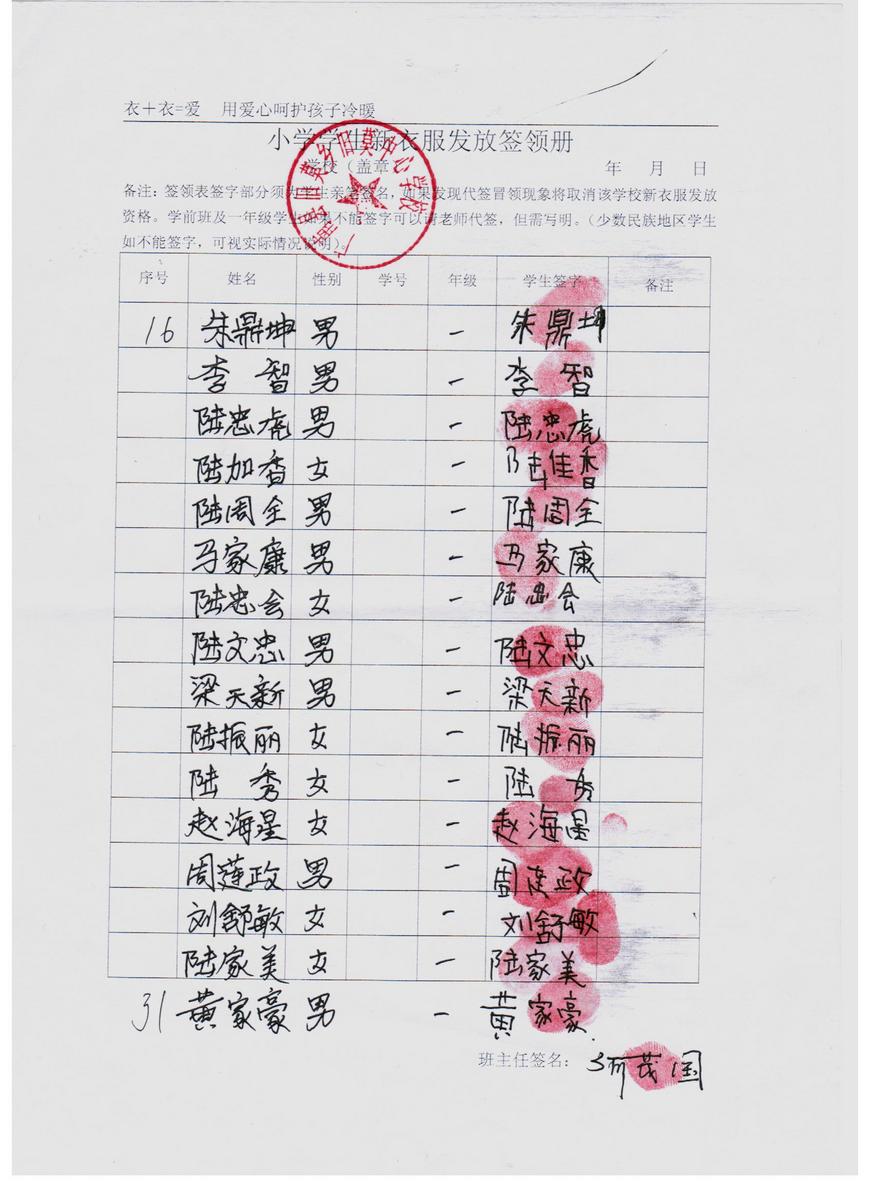 衣＋衣=爱 用爱心呵护孩子冷暖
小学学生新衣服发放签领册
学校（盖章 年 月 日
备注：签领表签字部分须为学生亲笔签名，如果发现代签冒领现象将取消该学校新衣服发放
资格。学前班及一年级学生如果不能签字可以请老师代签，但需写明。（少数民族地区学生
如不能签字，可视实际情况说明）。
广南县旧莫乡旧莫中心学校
序号 姓名 性别 学号 年级 学生签字 备注
16 朱鼎坤 男 一 朱鼎坤
李智 男 一 李智
陆忠虎 男 一 陆忠虎
陆加香 女 一 陆佳香
陆周全 男 一 陆周全
马家康 男 一 马家康
陆忠会 女 一 陆忠会
陆文忠 男 一 陆文忠
梁天新 男 一 梁天新
陆振丽 女 一 陆振丽
陆秀 女 一 陆秀
赵海星 女 一 赵海星
周莲政 男 一 周莲政
刘舒敏 女 一 刘舒敏
陆家美 女 一 陆家美
31 黄家豪 男 一 黄家豪
班主任签名：何茂国